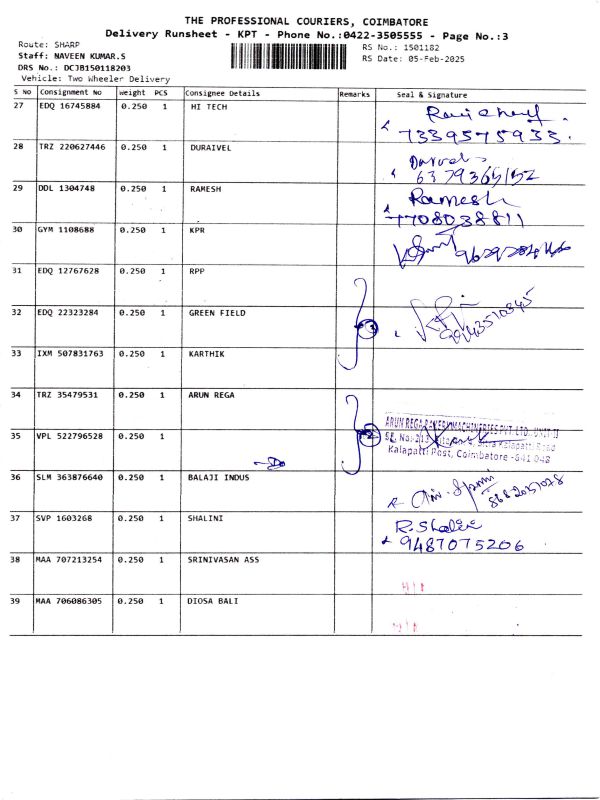 THE PROFESSIONAL COURIERS, COIMBATORE
Delivery Runsheet - KPT - Phone No.:0422-3505555 - Page No.:3
Route: SHARP
RS No.: 1501182
Staff: NAVEEN KUMAR.S
RS Date: 05-Feb-2025
DRS No.: DCJB150118203
Vehicle: Two Wheeler Delivery
S No Consignment No Weight PCS Consignee Details Remarks Seal & Signature
27 EDQ 16745884 0.250 1 HI TECH
7339575933
28 TRZ 220627446 0.250 1 DURAIVEL
29 DDL 1304748 0.250 1 RAMESH Ramesh
7708038811
30 GYM 1108688 0.250 1 KPR
31 EDQ 12767628 0.250 1 RPP
32 EDQ 22323284 0.250 1 GREEN FIELD 3
33 IXM 507831763 0.250 1 KARTHIK
34 TRZ 35479531 0.250 1 ARUN REGA
ARUN REGA BAKERY MACHINERIES PVT. LTD., UNIT-II
35 VPL 522796528 0.250 1 2
Kalapatti Post, Coimbatore - 641 048
36 SLM 363876640 0.250 1 BALAJI INDUS
37 SVP 1603268 0.250 1 SHALINI R. Shalini
9487075206
38 MAA 707213254 0.250 1 SRINIVASAN ASS
39 MAA 706086305 0.250 1 DIOSA BALI